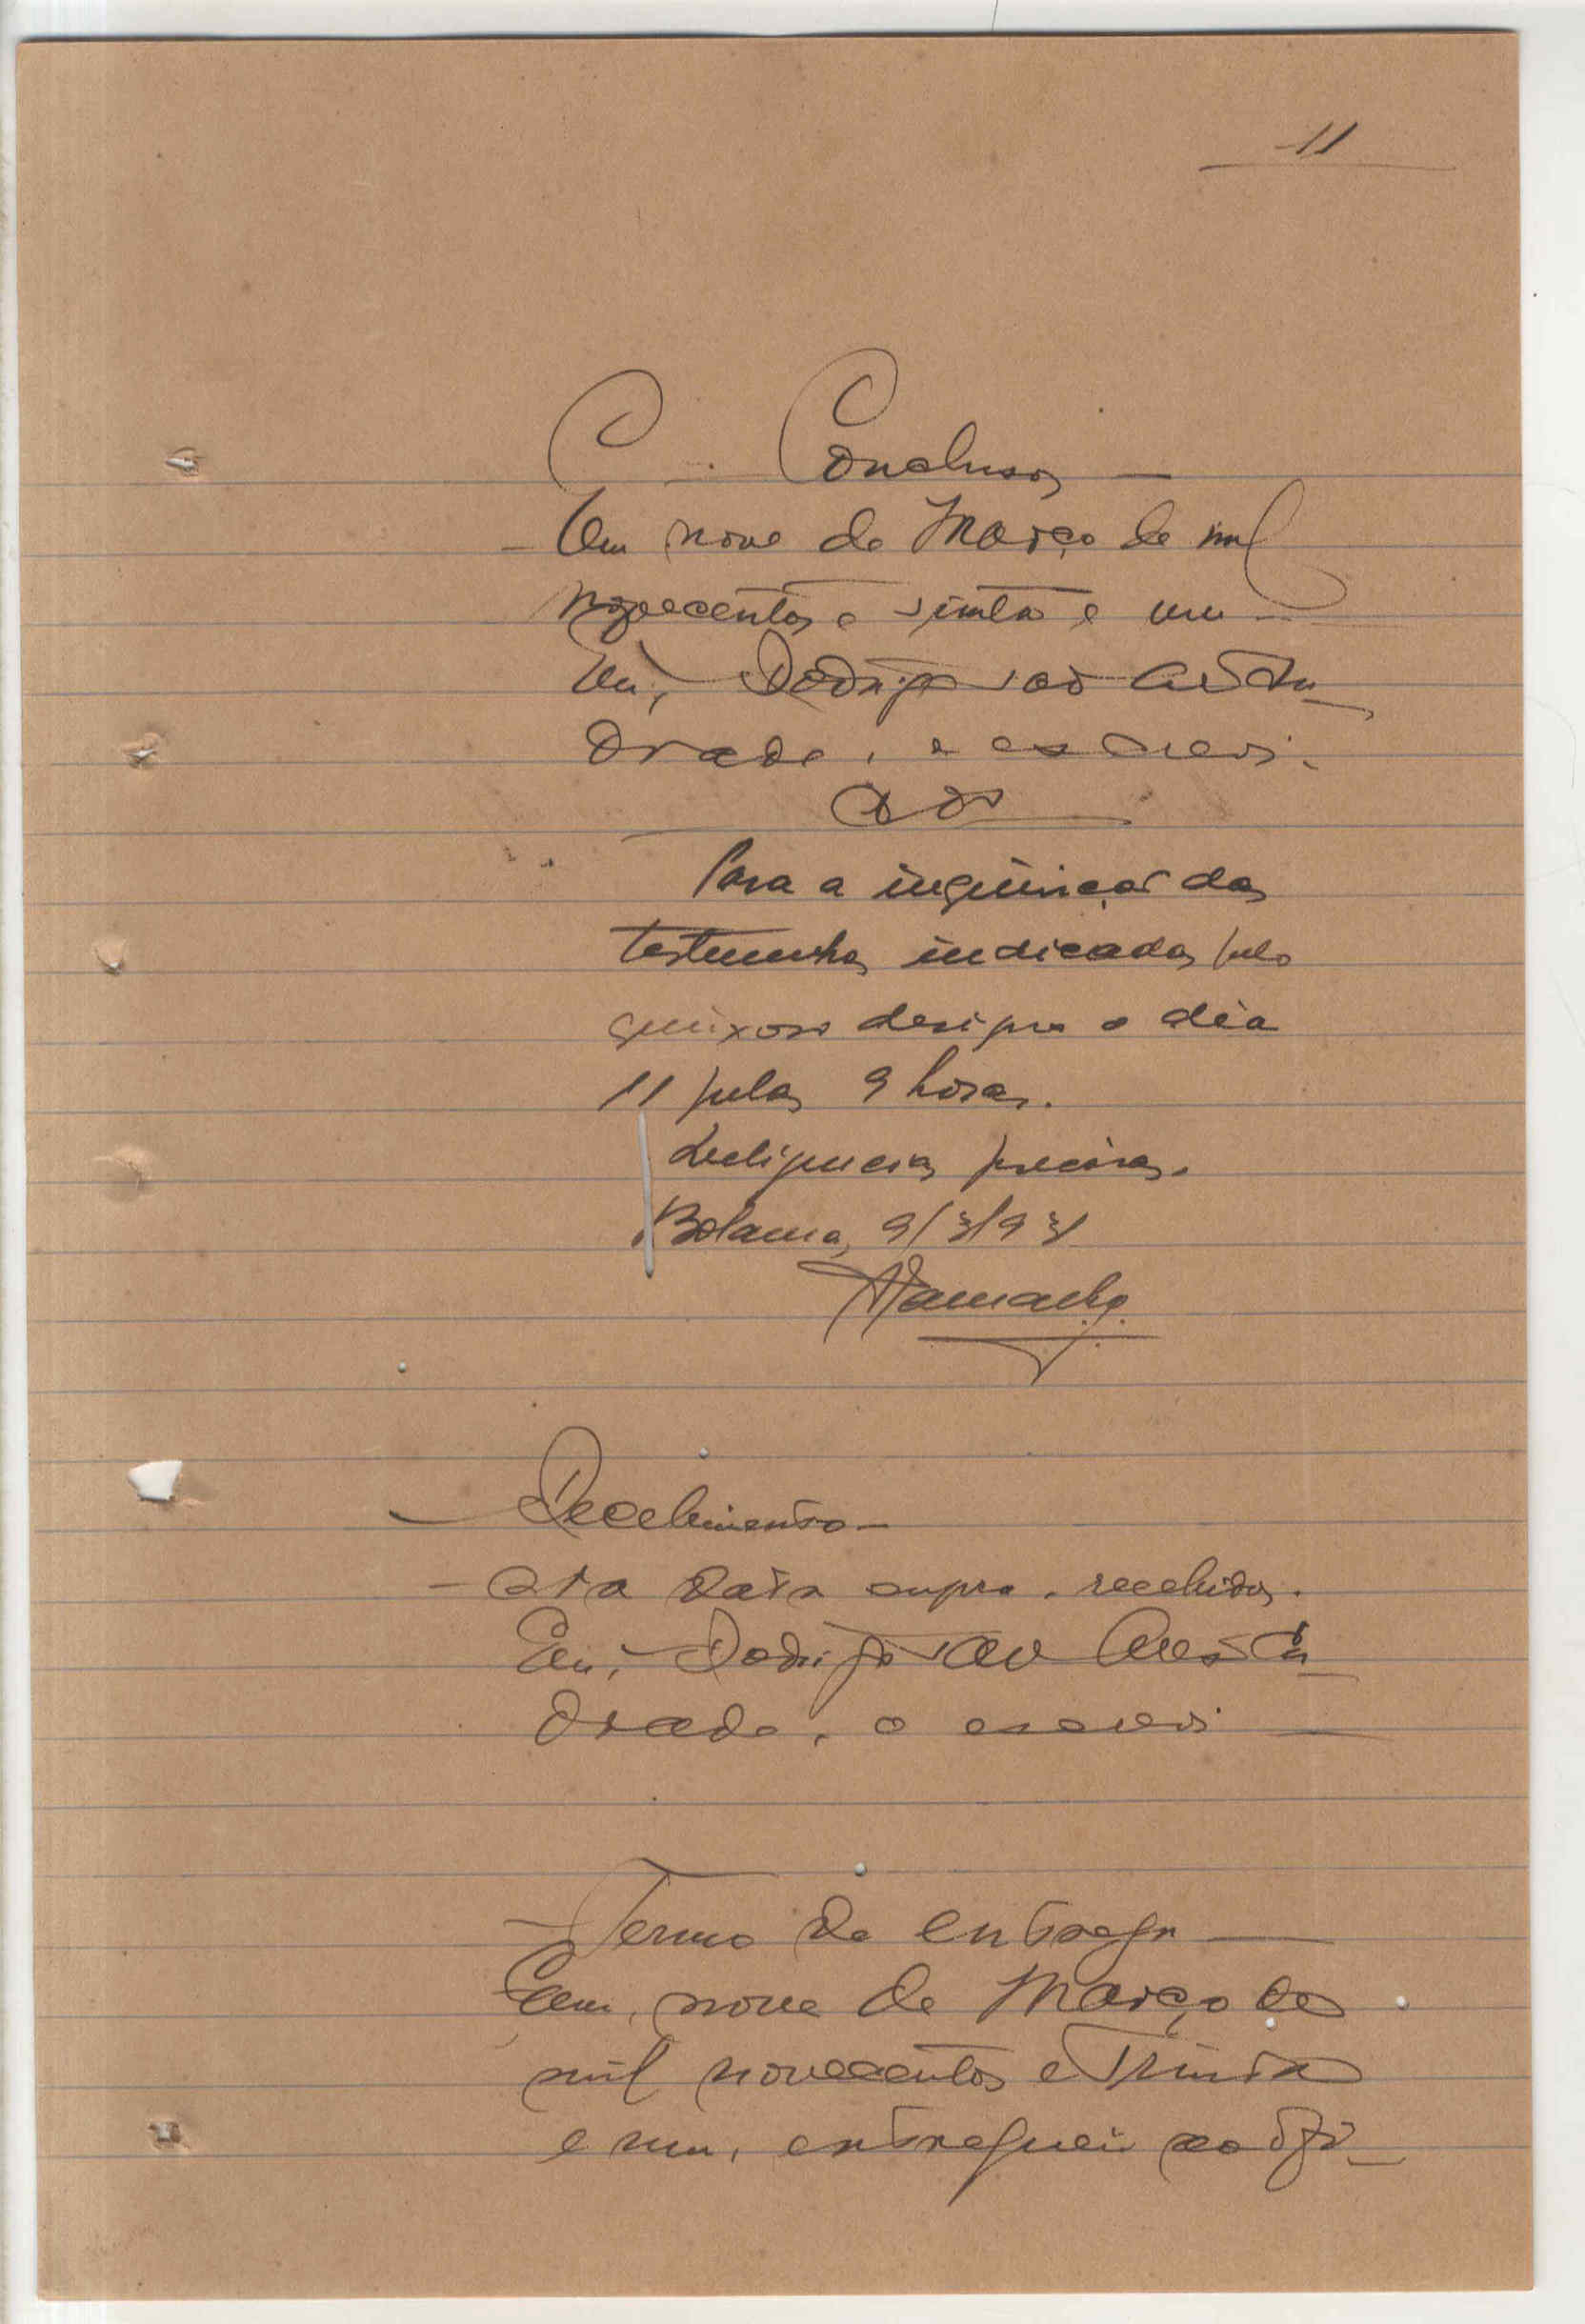 11
Conclusos
Em nove de Março de mil
novecentos e trinta e um
Eu, Rodrigo
drade, o escrevi.
Para a inquirição das
testemunhas indicadas pelo
queixoso designo o dia
11 pelas 9 horas.
Deligencias precisas.
Bolama, 9/3/931
Recebimento
Na data supra, recebidos.
Eu, Rodrigo
drade, o escrevi
Termo de entrega
Em, nove de Março de
mil novecentos e trinta
e um, entreguei ao ofi-